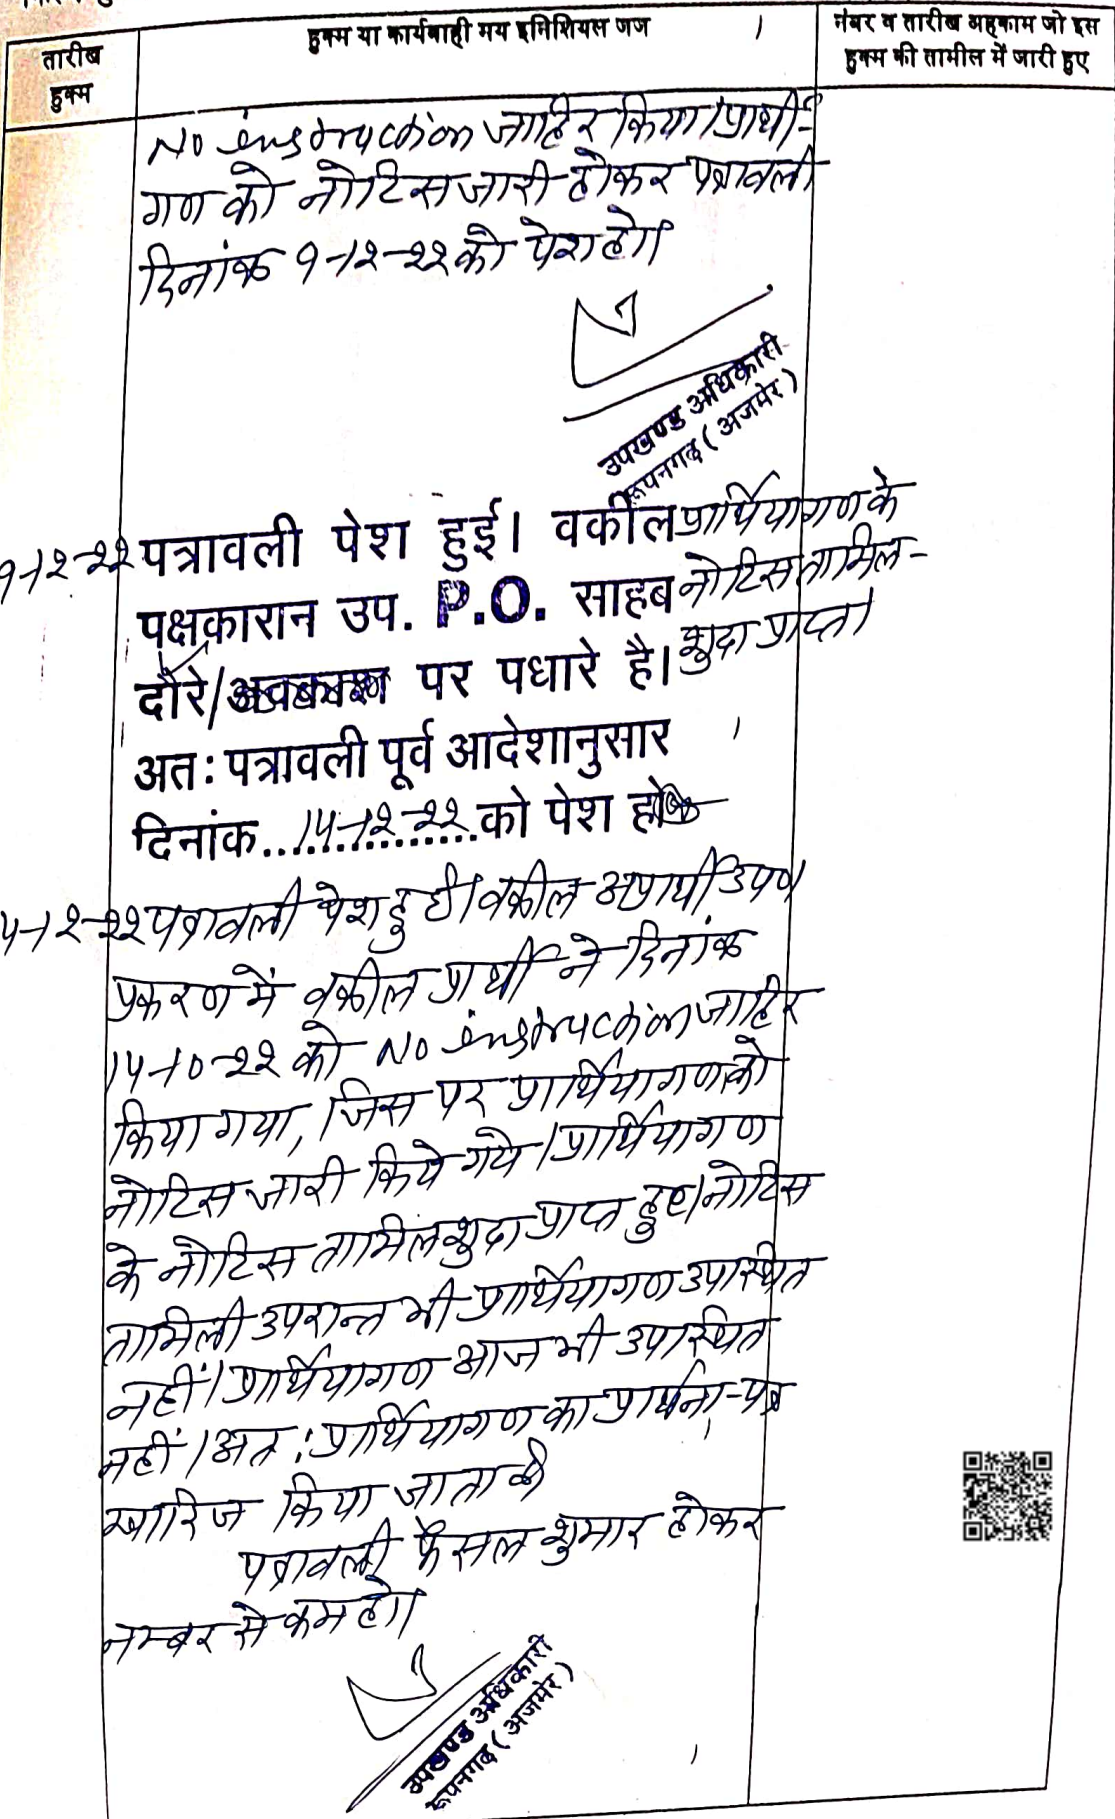 तारीख
हुक्म
हुक्म या कार्यवाही मय इनिशियल जज
नंबर व तारीख अहकाम जो इस
हुक्म की तामील में जारी हुए
No instruction जाहिर किया। प्रार्थी-
गण को नोटिस जारी होकर पत्रावली
दिनांक 9-12-22 को पेश हो।
उपखण्ड अधिकारी
रूपनगढ (अजमेर)
9-12-22 पत्रावली पेश हुई। वकील प्रार्थियागण के
पक्षकारान उप. P.O. साहब नोटिस तामिल-
दौरे/अवकाश पर पधारे है। शुदा प्राप्त।
अत: पत्रावली पूर्व आदेशानुसार
दिनांक...14-12-22...को पेश हो
14-12-22 पत्रावली पेश हुई। वकील अप्रार्थी उप०।
प्रकरण में वकील प्रार्थी ने दिनांक
14-10-22 को No instruction जाहिर
किया गया, जिस पर प्रार्थियागण को
नोटिस जारी किये गये। प्रार्थियागण
के नोटिस तामिलशुदा प्राप्त हुए। नोटिस
तामिली उपरान्त भी प्रार्थियागण उपस्थित
नहीं। प्रार्थियागण आज भी उपस्थित
नहीं। अत: प्रार्थियागण का प्रार्थना-पत्र
खारिज किया जाता है
पत्रावली फैसल शुमार होकर
नम्बर से कम हो।
उपखण्ड अधिकारी
रूपनगढ (अजमेर)